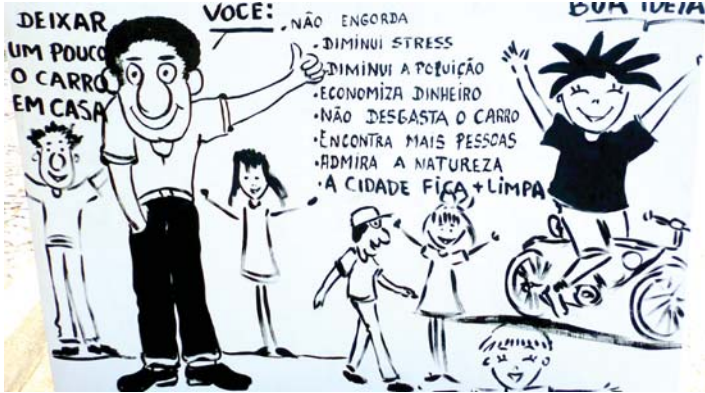 DEIXAR
UM POUCO
O CARRO
EM CASA
VOCÊ:
.NÃO ENGORDA
.DIMINUI STRESS
.DIMINUI A POLUIÇÃO
.ECONOMIZA DINHEIRO
.NÃO DESGASTA O CARRO
.ENCONTRA MAIS PESSOAS
.ADMIRA A NATUREZA
.A CIDADE FICA + LIMPA
BOA IDEIA